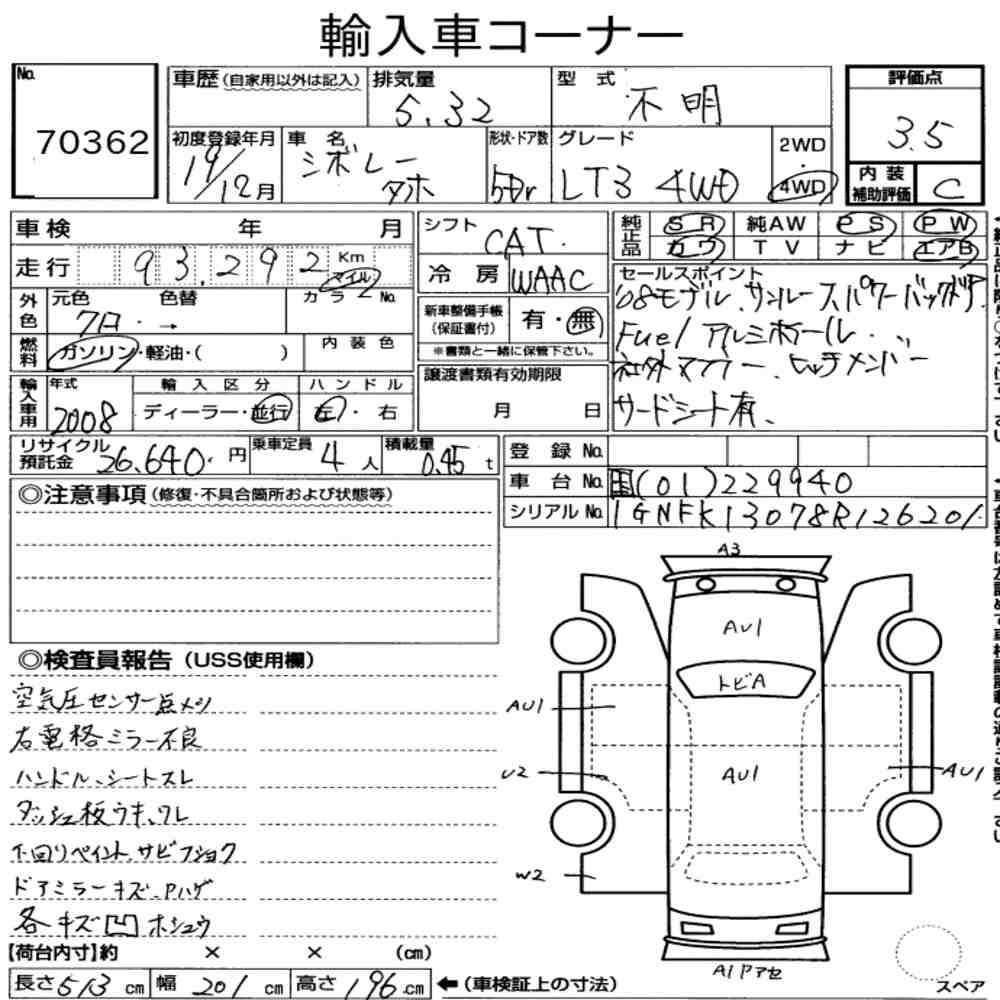 輸入車コーナー
No. 70362
車歴(自家用以外は記入) 排気量 5.32 型式 不明 評価点 3.5
初度登録年月 19/12月 車名 シボレー タホ 形状・ドア数 5Dr グレード LT3 4WD 2WD・4WD 内装補助評価 C
車検 年 月 シフト CAT. 純正品 SR 純AW PS PW
走行 93.292 Km マイル 冷房 WAAC カワ TV ナビ エアB
外色 元色 色替 カラーNo. クロ・→ 新車整備手帳(保証書付) 有・無
※書類と一緒に保管下さい。
燃料 ガソリン・軽油・( ) 内装色
セールスポイント
'08モデル、サンルーフ、パワーバックドア
Fuel アルミホイール.
社外マフラー、ヒッチメンバー
サードシート有、
輸入車用 年式 2008 輸入区分 ディーラー・並行 ハンドル 左・右 譲渡書類有効期限 月 日
リサイクル預託金 26,640円 乗車定員 4人 積載量 0.45t 登録No.
車台No. 国(01)229940
シリアルNo. 1GNFK13078R126201
◎注意事項(修復・不具合箇所および状態等)
◎検査員報告(USS使用欄)
空気圧センサー点メツ
右電格ミラー不良
ハンドル、シートスレ
ダッシュ板ウキ、ワレ
下回りペイント、サビフショク
ドアミラーキズ、Pハゲ
各キズ凹ホシュウ
A3
AU1
トビA
AU1
U2
AU1
AU1
W2
A1 Pアセ
スペア
【荷台内寸】約 × × (cm)
長さ513cm 幅201cm 高さ196cm ←(車検証上の寸法)